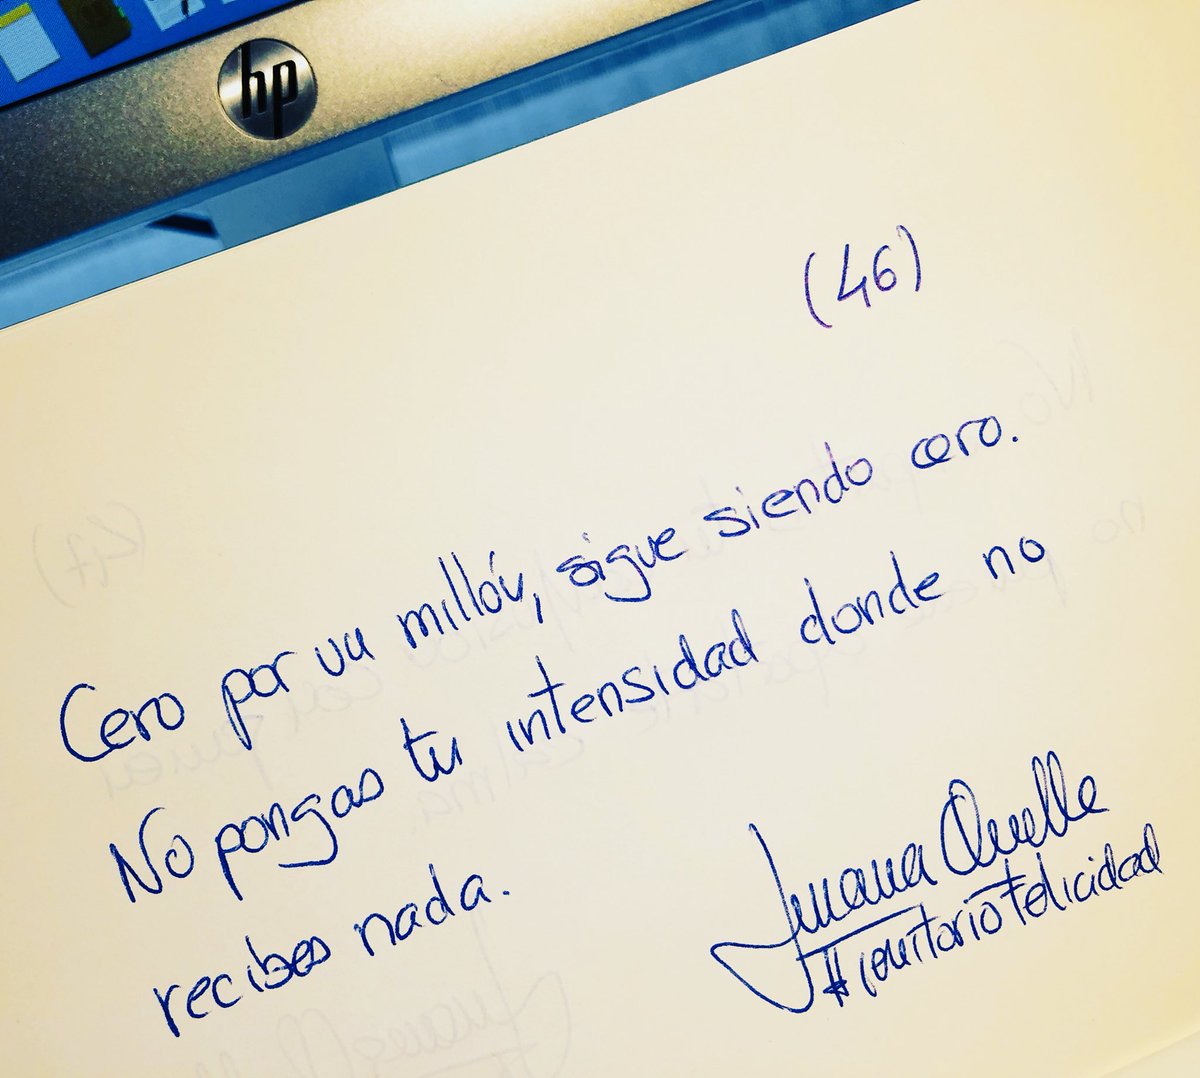 hp
(46)
Cero por un millón, sigue siendo cero.
No pongas tu intensidad donde no
recibes nada.
Juana Quelle